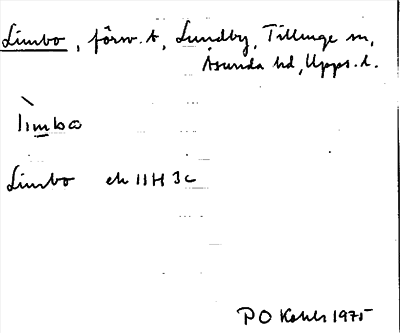 Limbo, förv. t, Lundby, Tillinge sn,
Åsunda hd, Upps. l.
lìmbω
Limbo ek 11H 3c
P O Kahls 1975